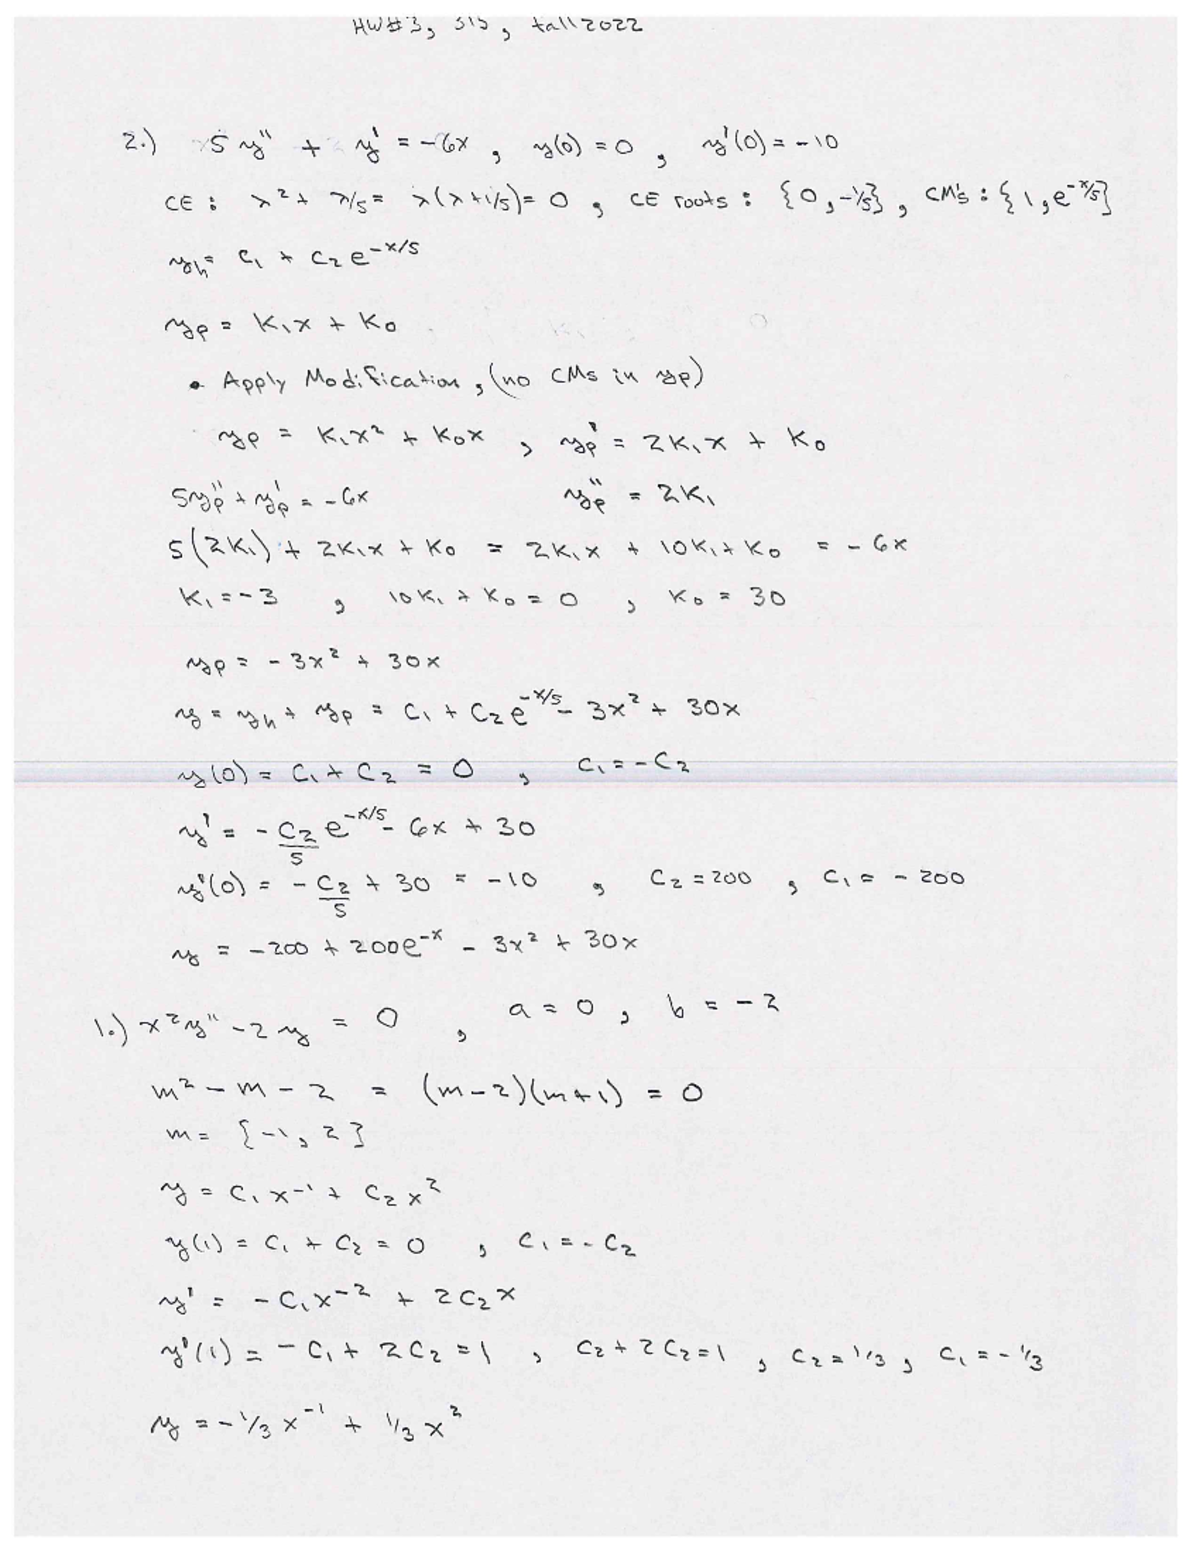 HW#3, 315, fall 2022
2.) 5y'' + y' = -6x , y(0) = 0 , y'(0) = -10
CE: λ² + λ/5 = λ(λ+1/5) = 0 , CE roots: {0, -1/5} , CM's: {1, e^(-x/5)}
y_h = c₁ + c₂e^(-x/5)
y_p = K₁x + K₀
• Apply Modification, (no CMs in y_p)
y_p = K₁x² + K₀x , y_p' = 2K₁x + K₀
5y_p'' + y_p' = -6x y_p'' = 2K₁
5(2K₁) + 2K₁x + K₀ = 2K₁x + 10K₁ + K₀ = -6x
K₁ = -3 , 10K₁ + K₀ = 0 , K₀ = 30
y_p = -3x² + 30x
y = y_h + y_p = c₁ + c₂e^(-x/5) - 3x² + 30x
y(0) = c₁ + c₂ = 0 , c₁ = -c₂
y' = -c₂/5 e^(-x/5) - 6x + 30
y'(0) = -c₂/5 + 30 = -10 , c₂ = 200 , c₁ = -200
y = -200 + 200e^(-x) - 3x² + 30x
1.) x²y'' - 2y = 0 , a = 0 , b = -2
m² - m - 2 = (m-2)(m+1) = 0
m = {-1, 2}
y = c₁x⁻¹ + c₂x²
y(1) = c₁ + c₂ = 0 , c₁ = -c₂
y' = -c₁x⁻² + 2c₂x
y'(1) = -c₁ + 2c₂ = 1 , c₂ + 2c₂ = 1 , c₂ = 1/3 , c₁ = -1/3
y = -1/3 x⁻¹ + 1/3 x²